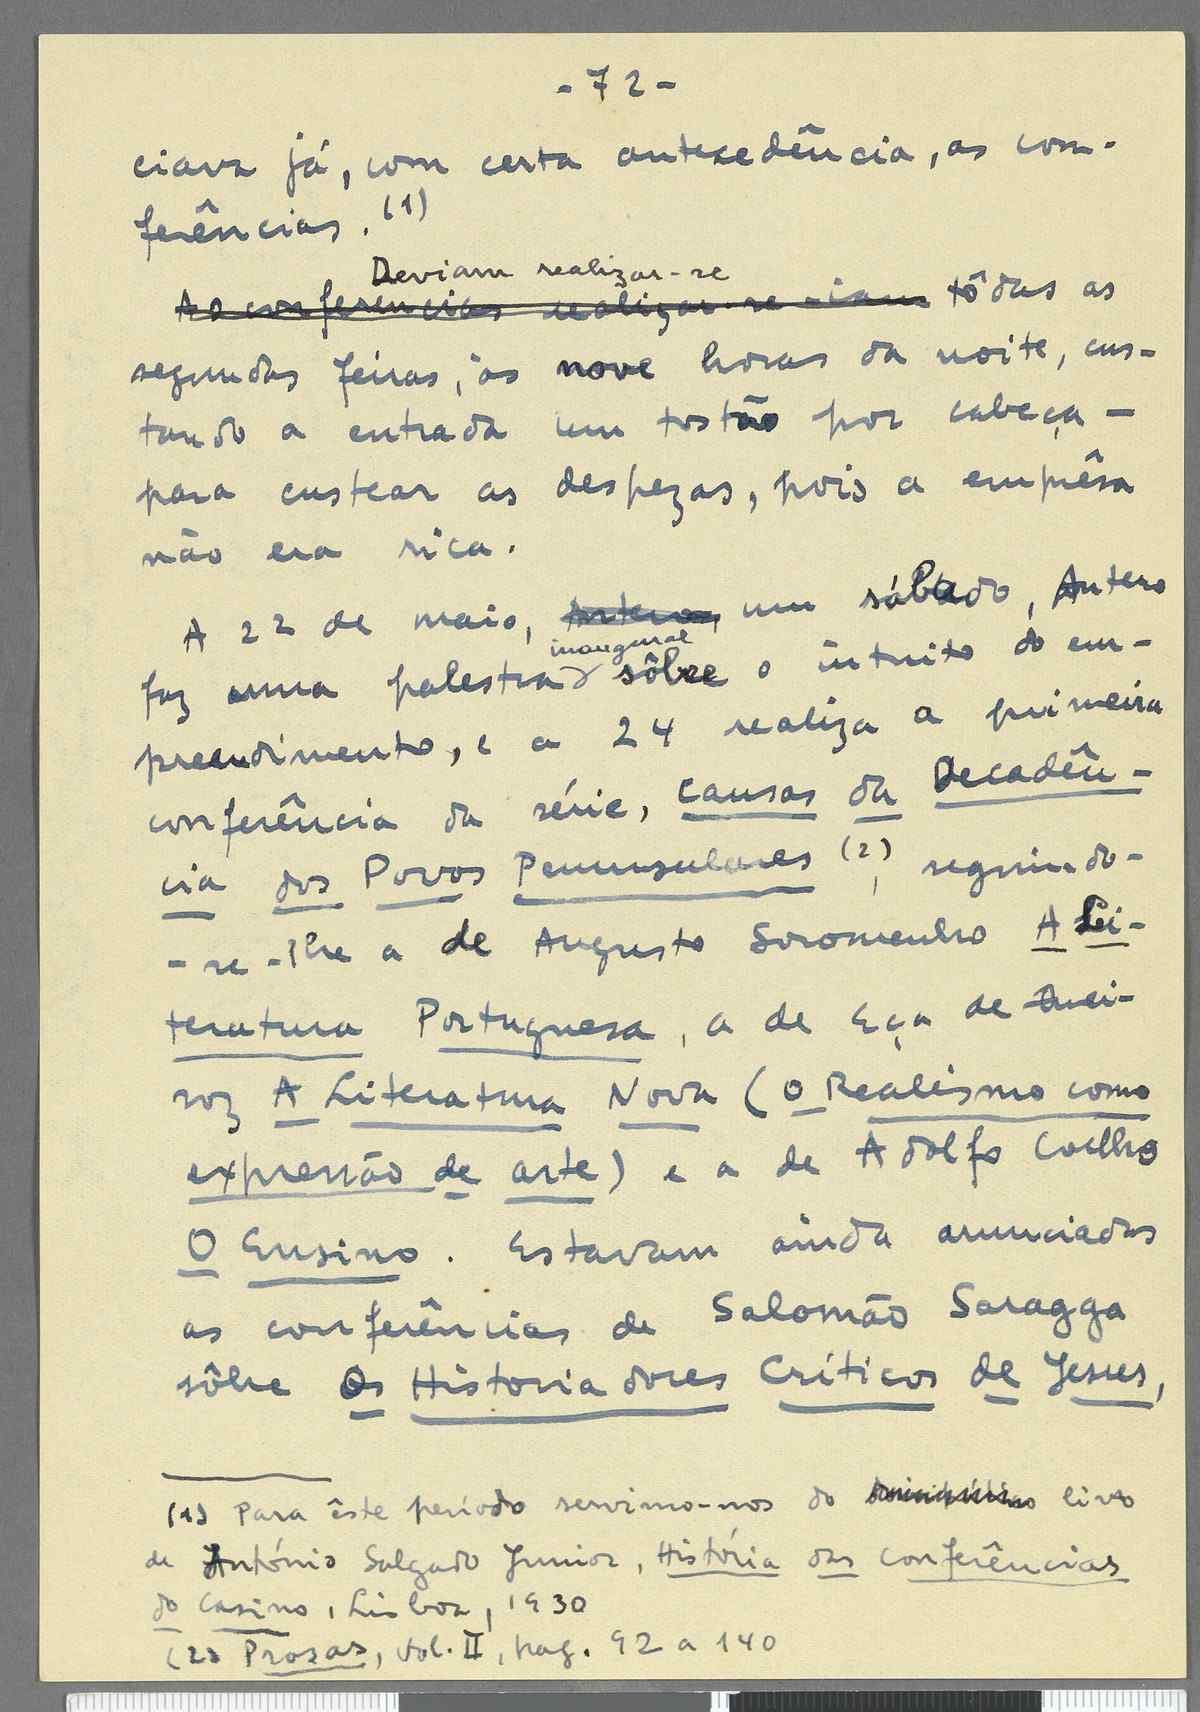 - 72 -
ciava já, com certa antecedência, as con-
ferências. (1)
Deviam realizar-se
As conferencias realizar-se-iam tôdas as
segundas feiras, às nove horas da noite, cus-
tando a entrada um tostão por cabeça -
para custear as despezas, pois a emprêsa
não era rica.
A 22 de maio, Antero, um sábado, Antero
inaugural
faz uma palestra sôbre o intuito do em-
preendimento, e a 24 realiza a primeira
conferência da série, Causas da Decadên-
cia dos Povos Peninsulares (2), seguindo-
-se-lhe a de Augusto Soromenho A Li-
teratura Portuguesa, a de Eça de Quei-
roz A Literatura Nova (O Realismo como
expressão de arte) e a de Adolfo Coelho
O Ensino. Estavam ainda anunciadas
as conferências de Salomão Saragga
sôbre Os Historiadores Críticos de Jesus,
(1) Para êste período servimo-nos do livro
de António Salgado Junior, História das Conferências
do Casino, Lisboa, 1930
(2) Prosas, vol. II, pag. 92 a 140